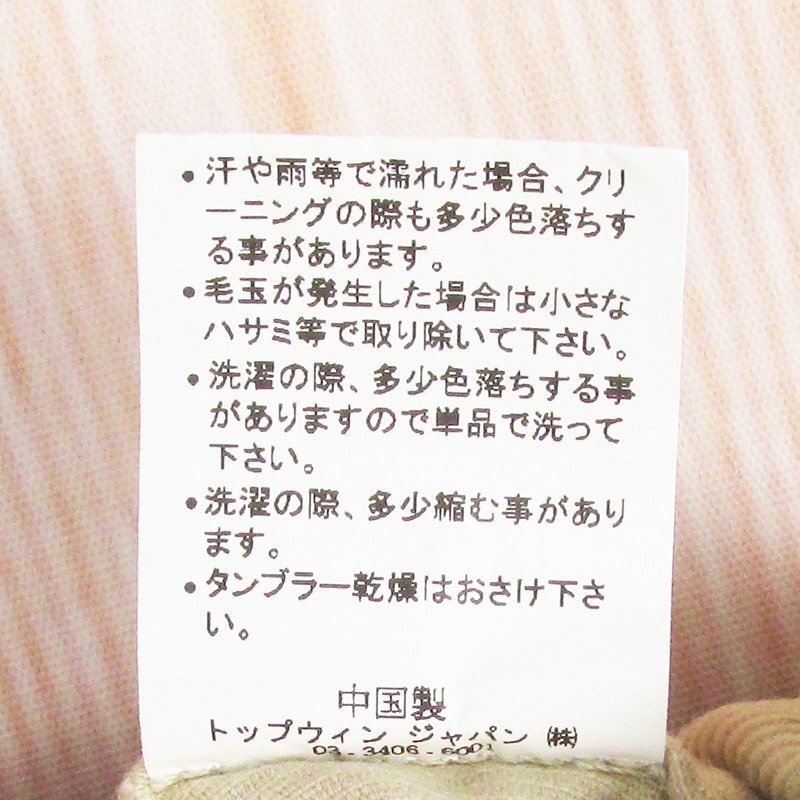 ・汗や雨等で濡れた場合、クリ
ーニングの際も多少色落ちす
る事があります。
・毛玉が発生した場合は小さな
ハサミ等で取り除いて下さい。
・洗濯の際、多少色落ちする事
がありますので単品で洗って
下さい。
・洗濯の際、多少縮む事があり
ます。
・タンブラー乾燥はおさけ下さ
い。
中国製
トップウィン ジャパン ㈱
03-3406-6001